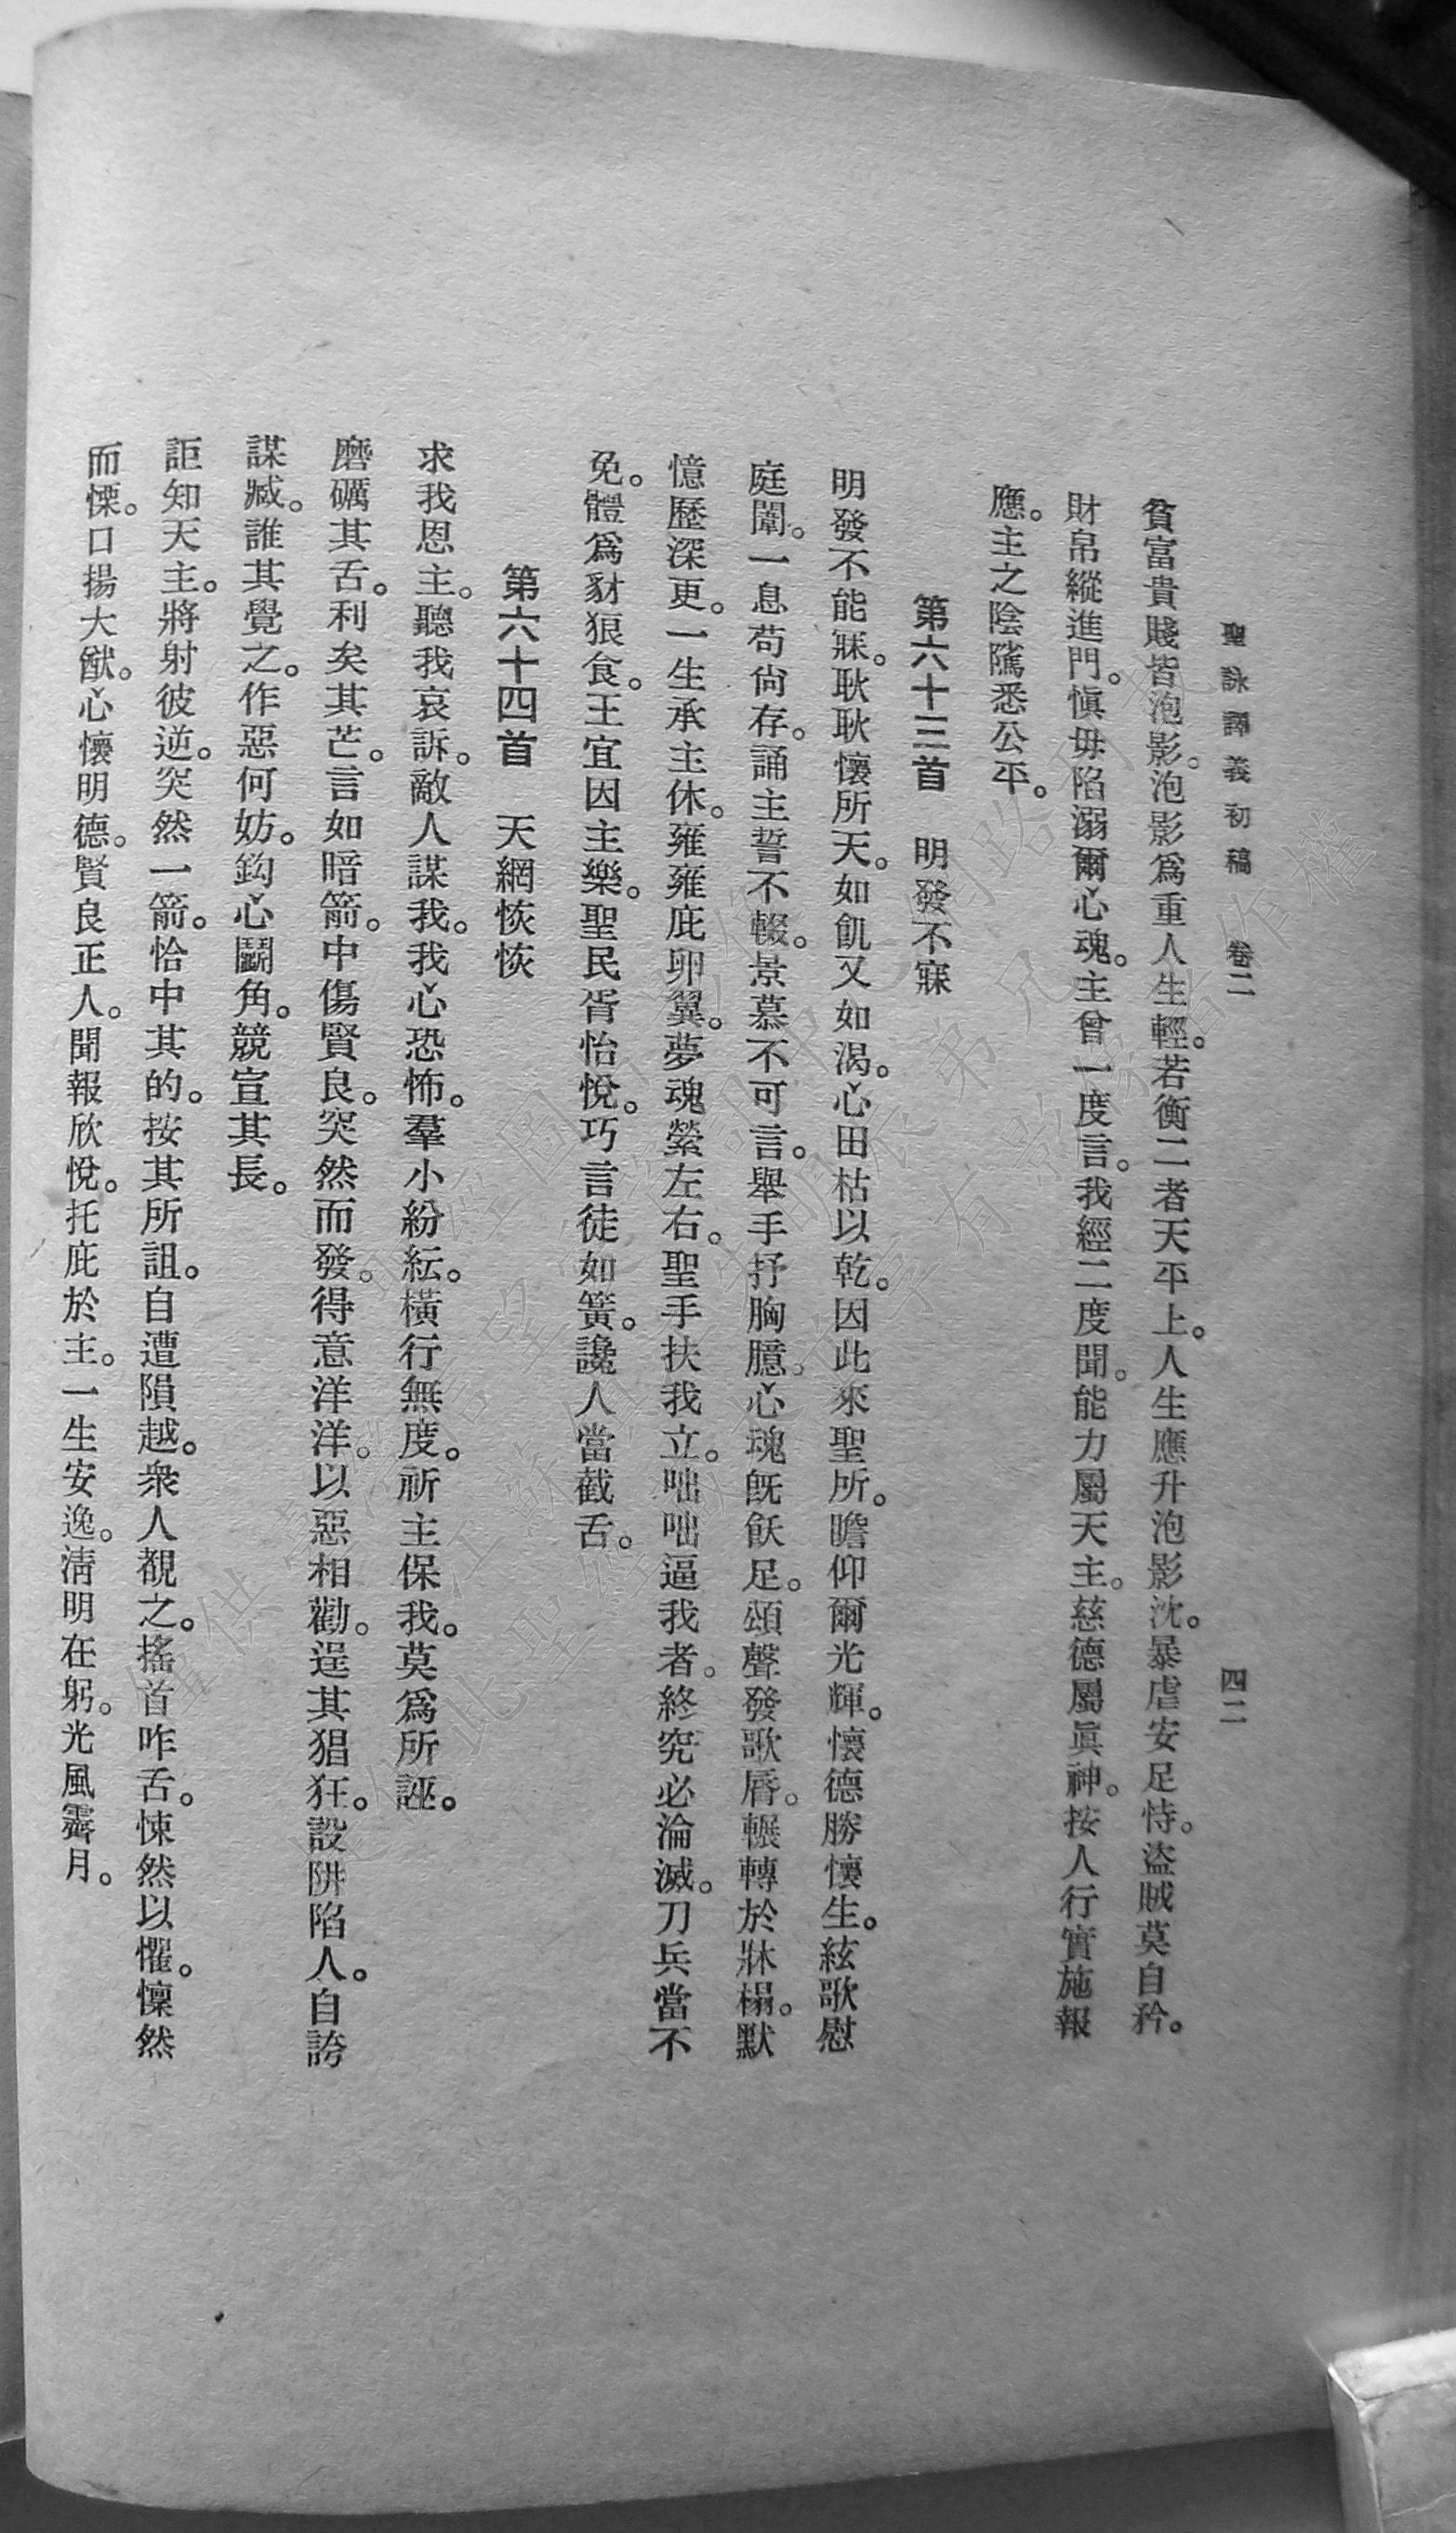 聖詠譯義初稿 卷二 四二
貧富貴賤皆泡影。泡影爲重人生輕。若衡二者天平上。人生應升泡影沈。暴虐安足恃。盜賊莫自矜。
財帛縱進門。愼毋陷溺爾心魂。主曾一度言。我經二度聞。能力屬天主。慈德屬眞神。按人行實施報
應。主之陰隲悉公平。
第六十三首 明發不寐
明發不能寐。耿耿懷所天。如飢又如渴。心田枯以乾。因此來聖所。瞻仰爾光輝。懷德勝懷生。絃歌慰
庭闈。一息苟尙存。誦主誓不輟。景慕不可言。舉手抒胸臆。心魂旣飫足。頌聲發歌脣。輾轉於牀榻。默
憶歷深更。一生承主休。雍雍庇卵翼。夢魂縈左右。聖手扶我立。咄咄逼我者。終究必淪滅。刀兵當不
免。體爲豺狼食。王宜因主樂。聖民胥怡悅。巧言徒如簧。讒人當截舌。
第六十四首 天網恢恢
求我恩主。聽我哀訴。敵人謀我。我心恐怖。羣小紛紜。橫行無度。祈主保我。莫爲所誣。
磨礪其舌。利矣其芒。言如暗箭。中傷賢良。突然而發。得意洋洋。以惡相勸。逞其猖狂。設阱陷人。自誇
謀臧。誰其覺之。作惡何妨。鈎心鬭角。競宣其長。
詎知天主。將射彼逆。突然一箭。恰中其的。按其所詛。自遭隕越。衆人覩之。搖首咋舌。悚然以懼。懍然
而慄。口揚大猷。心懷明德。賢良正人。聞報欣悅。托庇於主。一生安逸。淸明在躬。光風霽月。